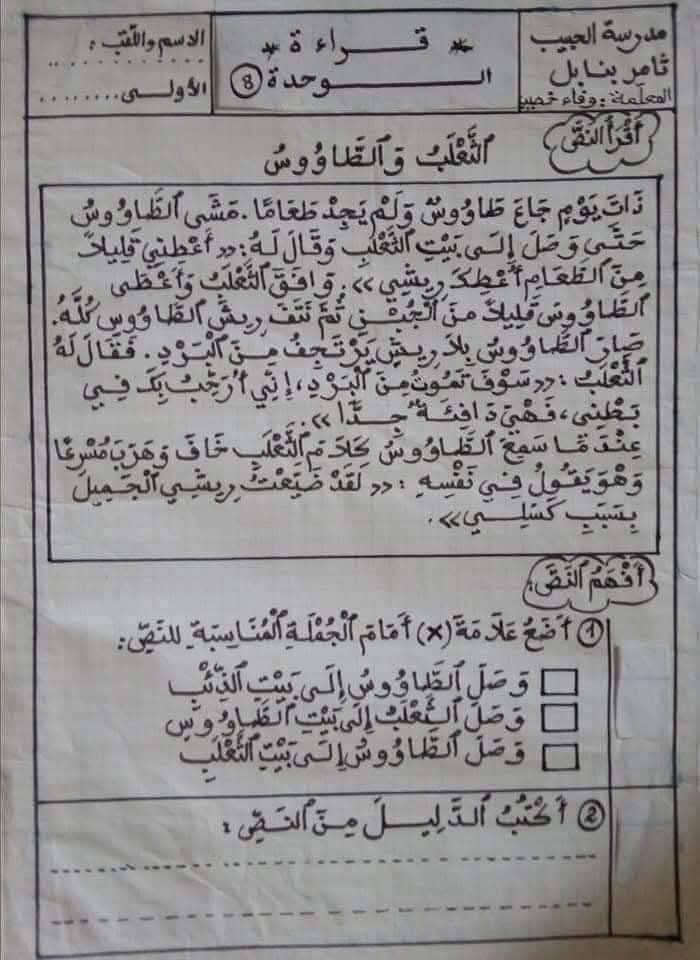 مدرسة الحبيب
ثامر بنابل
المعلمة: وفاء خصيب
* قــراءة *
الــوحدة 8
الاسم واللقب:
. . . . . . . . . . .
الأولـى.........
أَقْرَأُ النَّصَّ
الثَّعْلَبُ وَالطَّاوُوسُ
ذَاتَ يَوْمٍ جَاعَ طَاوُوسٌ وَلَمْ يَجِدْ طَعَامًا. مَشَى الطَّاوُوسُ
حَتَّى وَصَلَ إِلَى بَيْتِ الثَّعْلَبِ وَقَالَ لَهُ: «أَعْطِنِي قَلِيلاً
مِنَ الطَّعَامِ أُعْطِكَ رِيشِي». وَافَقَ الثَّعْلَبُ وَأَعْطَى
الطَّاوُوسَ قَلِيلاً مِنَ الْجُبْنِ ثُمَّ نَتَفَ رِيشَ الطَّاوُوسِ كُلَّهُ.
صَارَ الطَّاوُوسُ بِلَا رِيشٍ يَرْتَجِفُ مِنَ الْبَرْدِ. فَقَالَ لَهُ
الثَّعْلَبُ: «سَوْفَ تَمُوتُ مِنَ الْبَرْدِ، إِنِّي أُرَحِّبُ بِكَ فِي
بَطْنِي، فَهْيَ دَافِئَةٌ جِدًّا».
عِنْدَمَا سَمِعَ الطَّاوُوسُ كَلَامَ الثَّعْلَبِ خَافَ وَهَرَبَ مُسْرِعًا
وَهْوَ يَقُولُ فِي نَفْسِهِ: «لَقَدْ ضَيَّعْتُ رِيشِي الْجَمِيلَ
بِسَبَبِ كَسَلِي».
أَفْهَمُ النَّصَّ:
1 أَضَعُ عَلَامَةَ (×) أَمَامَ الْجُمْلَةِ الْمُنَاسِبَةِ لِلنَّصِّ:
وَصَلَ الطَّاوُوسُ إِلَى بَيْتِ الذِّئْبِ
وَصَلَ الثَّعْلَبُ إِلَى بَيْتِ الطَّاوُوسِ
وَصَلَ الطَّاوُوسُ إِلَى بَيْتِ الثَّعْلَبِ
2 أَكْتُبُ الدَّلِيلَ مِنَ النَّصِّ: